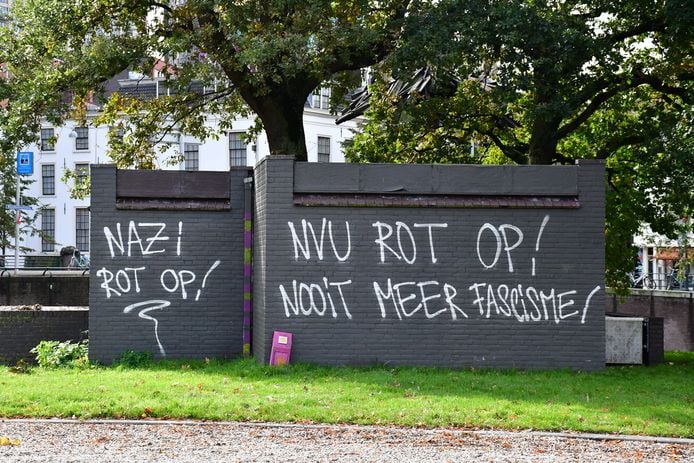 NAZI
ROT OP!
NVU ROT OP!
NOOIT MEER FASCISME!